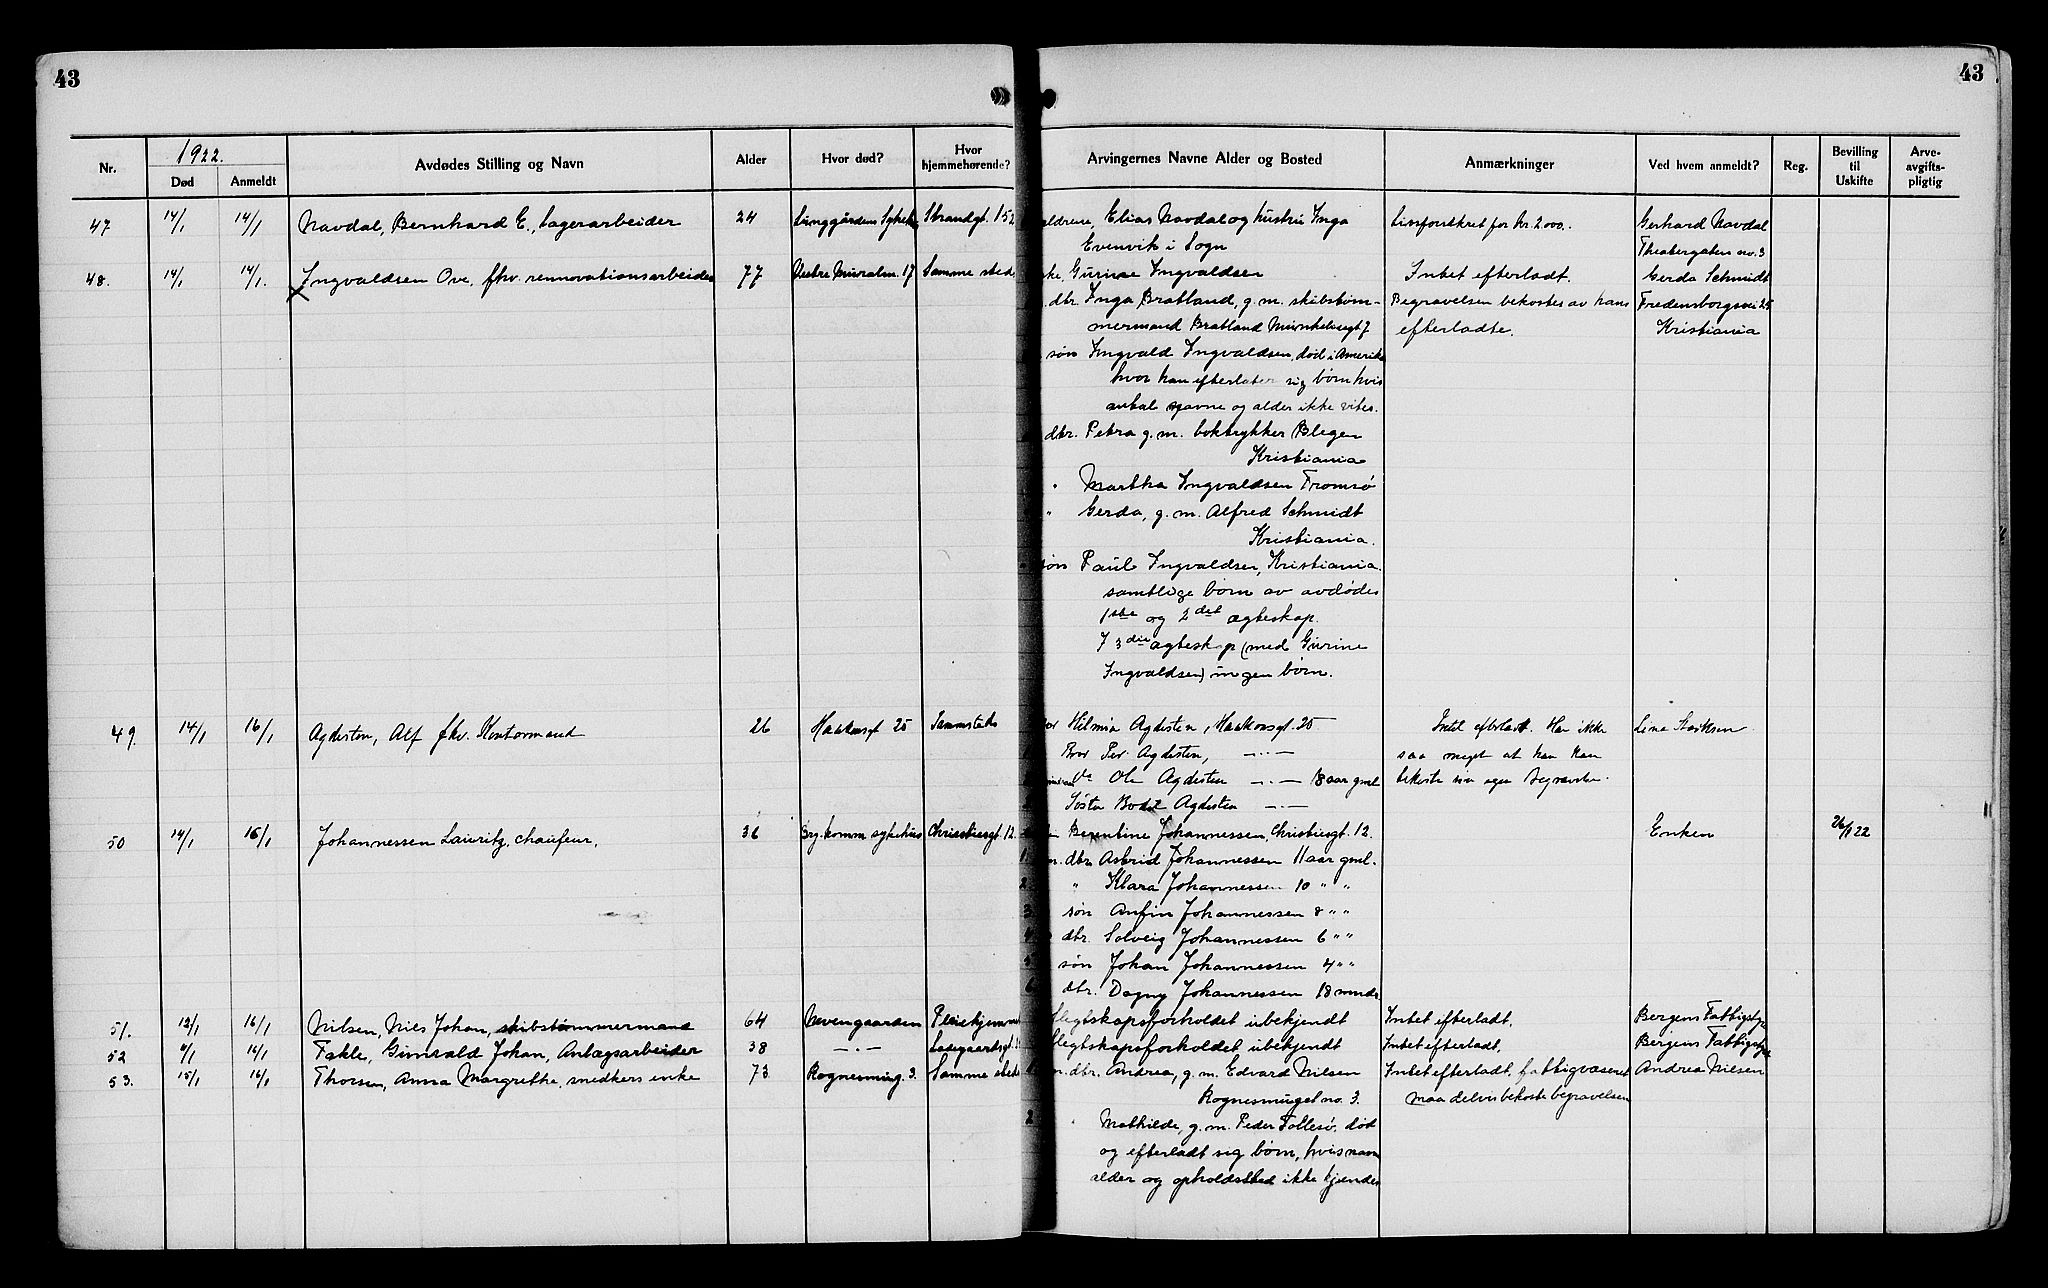 43
43
1922.
Nr. Død Anmeldt Avdødes Stilling og Navn Alder Hvor død? Hvor hjemmehørende? Arvingernes Navne Alder og Bosted Anmærkninger Ved hvem anmeldt? Reg. Bevilling til Uskifte Arve-avgifts-pligtig
47 14/1 14/1 Navdal, Bernhard E., Lagerarbeider 24 Lunggårdens Strandgt. 152 Elias Navdal og hustru Inga Livsforsikret for kr. 2000. Gerhard Navdal
Evenvik i Sogn Theatergaten no. 3
48. 14/1 14/1. Ingvaldsen Ove, fhv. rennovationsarbeider 77 Vestre Muralm. 17 Samme sted Gurine Ingvaldsen Intet efterladt. Gerda Schmidt
dtr. Inga Bratland, g. m. skibstøm- Begravelsen bekostes av hans Fredensborgsvei 25
mermand Bratland Munkebsgt 7 efterladte. Kristiania
søn Ingvald Ingvaldsen, død i Amerika
hvor han efterlater sig børn hvis
antal navne og alder ikke vites.
dtr. Petra g. m. boktrykker Blegen
Kristiania
" Martha Ingvaldsen Tromsø
" Gerda, g. m. Alfred Schmidt
Kristiania.
søn Paul Ingvaldsen, Kristiania.
samtlige børn av avdødes
1ste og 2det ægteskap.
I 3die ægteskap (med Gurine
Ingvaldsen) ingen børn.
49. 14/1 16/1 Agdesten, Alf fhv. Kontormand 26 Haakonsgt 25 Sammesteds Hilmia Agdesten, Haakonsgt. 25 Intet efterladt. Har ikke
Bror Per Agdesten, — saa meget at han kan
Ole Agdesten — 18 aar gml bekoste sin egen begravelse.
Søster Bodil Agdesten —
50 14/1 16/1 Johannessen Lauritz, chaufeur, 36 Brg. komm sykehus Christiesgt. 12. Berentine Johannessen, Christiesgt. 12. Enken 26/1 22
1. dtr. Astrid Johannessen 11 aar gml.
2 " Klara Johannessen 10 " "
3 søn Anfin Johannessen 8 " "
4 dtr. Solveig Johannessen 6 " "
5 søn Johan Johannessen 4 " "
6 dtr. Dagny Johannessen 18 mndr.
51. 12/1 16/1 Nilsen, Nils Johan, skibstømmermand 64 Nevengaarden Pleiehjemmet Slegtskapsforholdet ubekjendt Intet efterladt. Bergens
52 16/1 Takle, Gunvald Johan, Anlægsarbeider 38 —.— Ladegaardsgt. Slegtskapsforholdet ubekjendt Intet efterladt, Bergens
53. 15/1 16/1 Thorsen, Anna Margrethe, snedkers enke 73 Rognesmug. 3. Samme sted dtr. Andrea, g. m. Edvard Nilsen Intet efterladt, fattigvæsenet Andrea Nilsen
Rognesmuget no. 3. maa delvis bekoste begravelsen
2 " Mathilde, g. m. Peder Tollesø, død
og efterladt sig børn, hvis navn
alder og opholdssted ikke kjendes